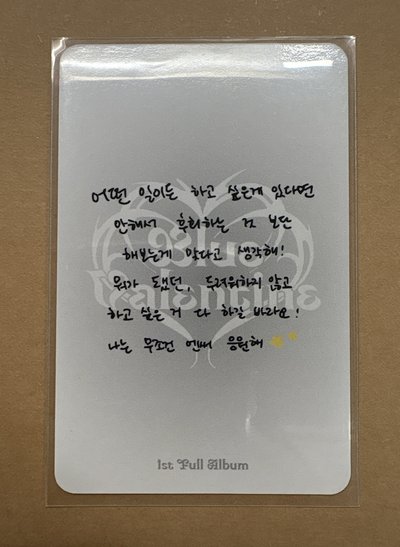 어떤 일이든 하고 싶은게 있다면
안해서 후회하는 것 보단
해보는게 낫다고 생각해!
뭐가 됐던, 두려워하지 않고
하고 싶은 거 다 하길 바라요!
나는 무조건 엔써 응원해
Blue
Valentine
1st Full Album